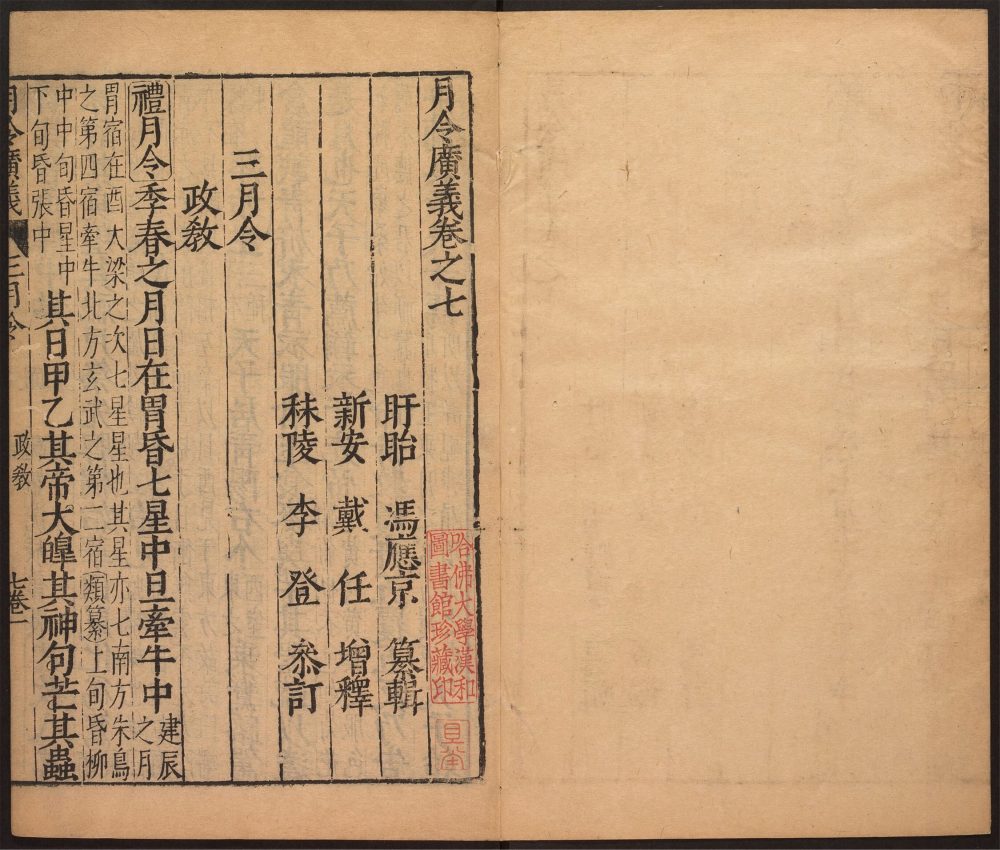 月令廣義卷之七
盱眙　馮應京　纂輯
新安　戴　任　增釋
秣陵　李　登　叅訂
三月令
政敎
禮月令季春之月日在胃昏七星中旦牽牛中建辰之月
胃宿在酉大梁之次七星星也其星亦七南方朱鳥
之第四宿牽牛北方玄武之第二宿類纂上旬昏柳
中中旬昏星中
下旬昏張中
其日甲乙其帝大皡其神句芒其蟲
月令廣義　三月令　政敎　七卷一
哈佛大學漢和
圖書館珍藏印